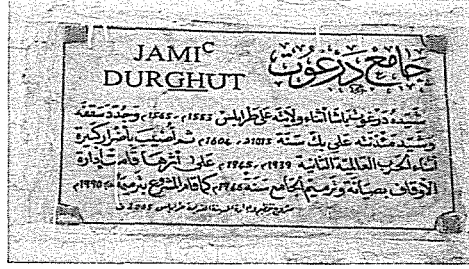 JAMIᶜ
DURGHUT
جامع درغوت
شيده درغوت باشا أثناء ولايته على طرابلس 1553م-1565م وجدد سقفه
وشيد مئذنته علي بك سنة 1013هـ 1604م ثم أصيب بأضرار كبيرة
أثناء الحرب العالمية الثانية 1939م-1945م على أثرها قامت إدارة
الأوقاف بصيانة وترميم الجامع سنة كما قام المشروع بترميمه 1990م